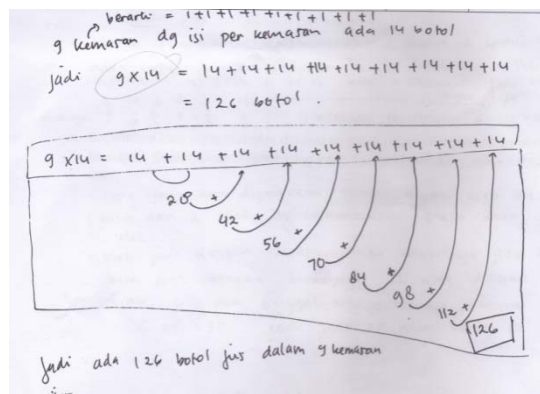 berarti = 1+1+1+1+1+1+1+1+1
9 kemasan dg isi per kemasan ada 14 botol
jadi 9 x 14 = 14 + 14 + 14 + 14 + 14 + 14 + 14 + 14 + 14
= 126 botol.
9 x 14 = 14 + 14 + 14 + 14 + 14 + 14 + 14 + 14 + 14
28 +
42 +
56 +
70 +
84 +
98 +
112 +
126
Jadi ada 126 botol jus dalam 9 kemasan